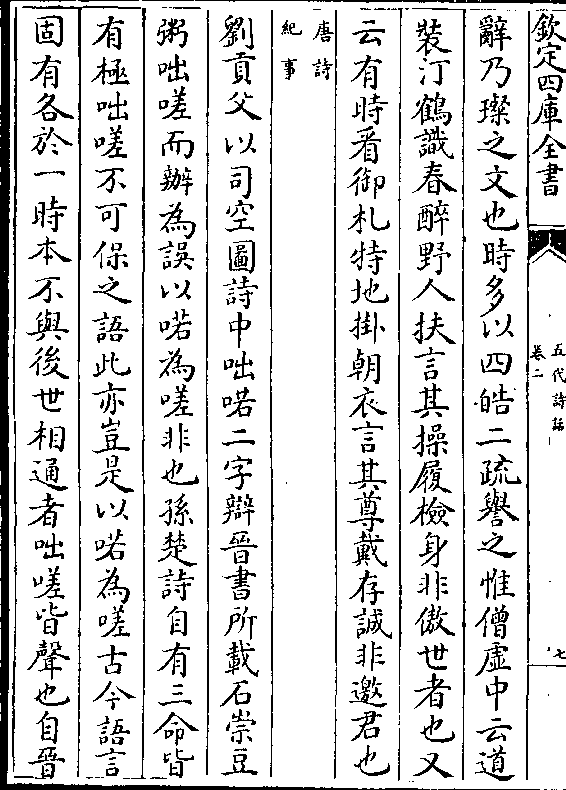 欽定四庫全書
五代詩話
卷二
七
辭乃璨之文也時多以四皓二疏譽之惟僧虛中云道
裝汀鶴識春醉野人扶言其操履檢身非傲世者也又
云有時看御札特地掛朝衣言其尊戴存誠非邀君也
唐詩
紀事
劉貢父以司空圖詩中咄喏二字辯晉書所載石崇豆
粥咄嗟而辦為誤以喏為嗟非也孫楚詩自有三命皆
有極咄嗟不可保之語此亦豈是以喏為嗟古今語言
固有各於一時本不與後世相通者咄嗟皆聲也自晉